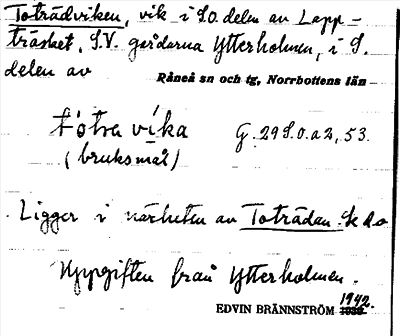 Toträdviken, vik i S.O. delen av Lapp-
träsket, S.V. gårdarna Ytterholmen, i S.
delen av Råneå sn och tg, Norrbottens län
tótra víka G. 29 S.O. a 2, 53.
(bruksmål)
Ligger i närheten av Toträdan. Se d.o
Uppgiften från Ytterholmen.
EDVIN BRÄNNSTRÖM 1942.